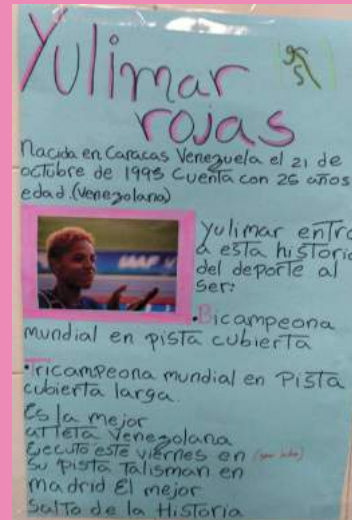 Yulimar
rojas
Nacida en Caracas Venezuela el 21 de
octubre de 1995 Cuenta con 26 años
edad.(Venezolana)
Yulimar entro
a esta historia
del deporte al
ser:
•Bicampeona
mundial en pista cubierta
•Tricampeona mundial en Pista
cubierta larga.
Es la mejor
atleta Venezolana
Ejecuto este viernes en
su pista Talisman en
madrid El mejor
Salto de la Historia